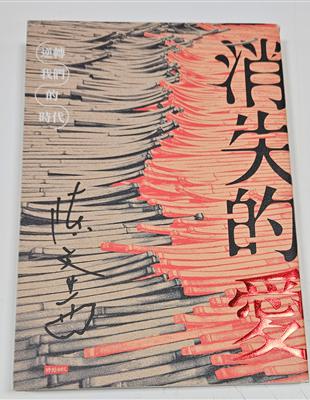 消失的愛
逆轉
我們
的
時代
陳文茜
時報出版